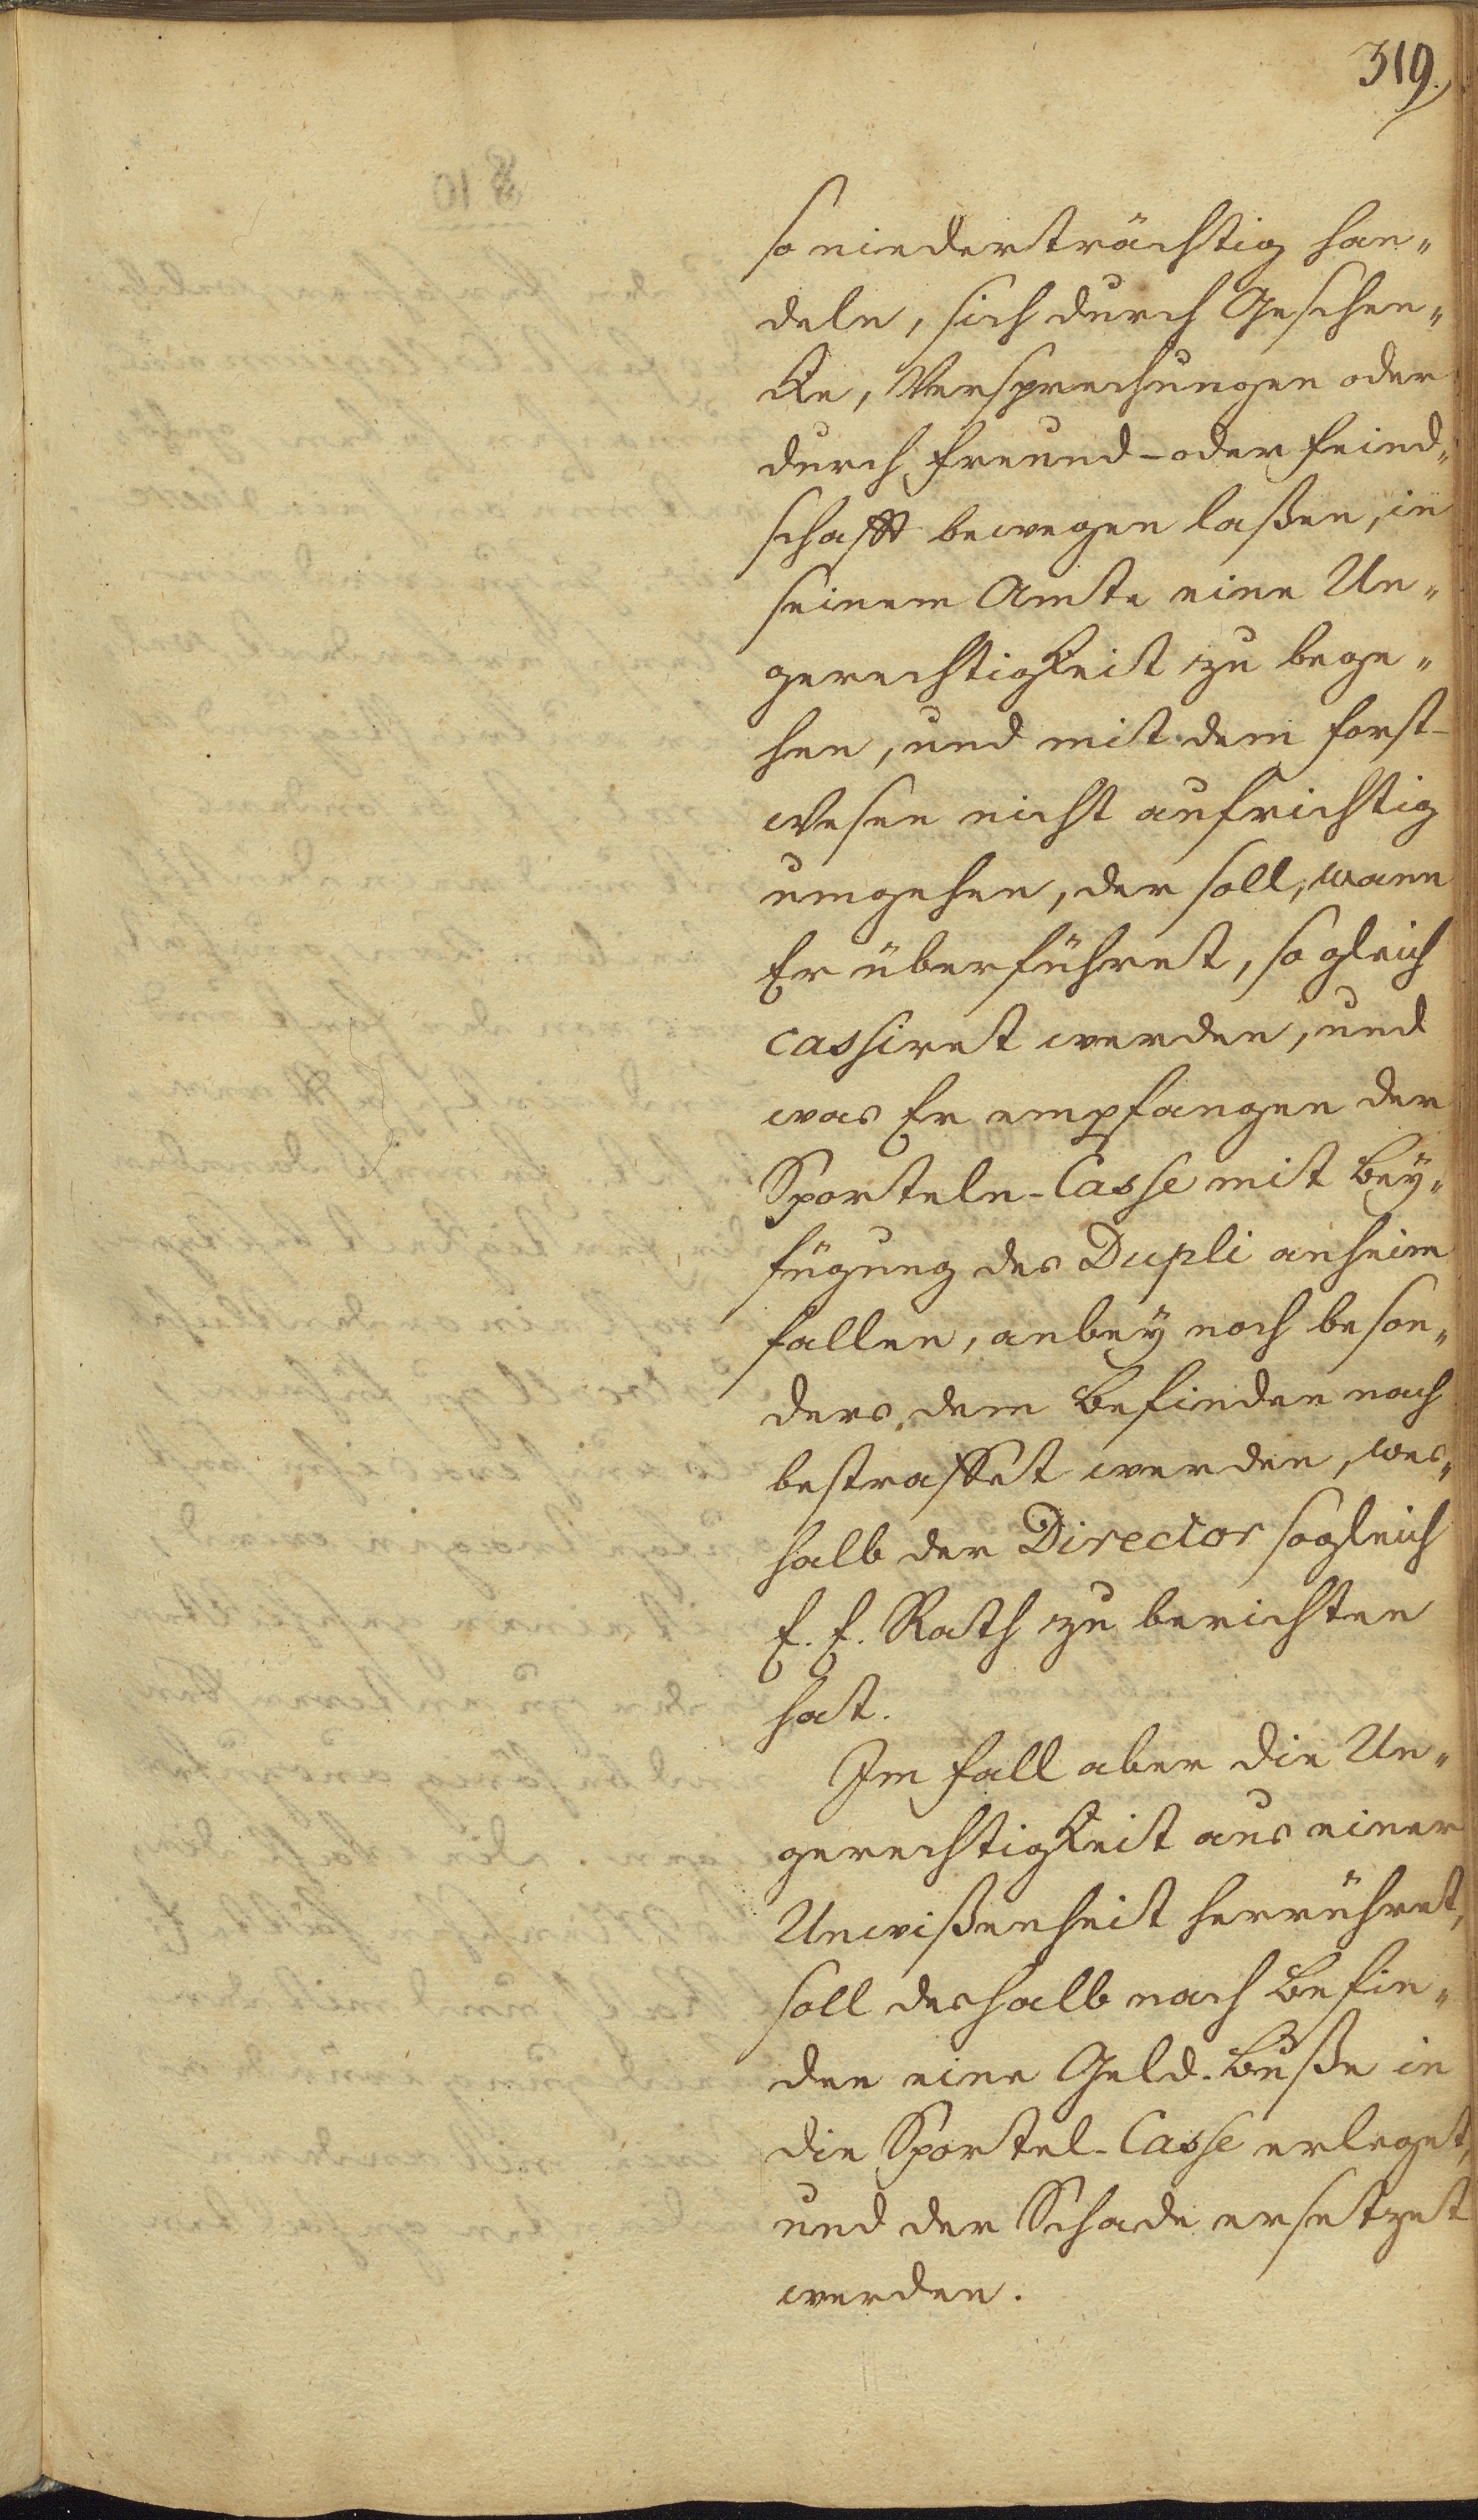 319.
so niederträchtig han„
deln, sich durch Geschen„
ke, Versprechungen oder
durch Freund- oder Feind„
schafft bewegen laßen, in
seinem Amte eine Un„
gerechtigkeit zu bege„
hen, und mit dem Forst-
Wesen nicht aufrichtig
umgehen, der soll, wann
Er überführet, so gleich
cassiret werden, und
was Er empfangen der
Sporteln-Casse mit Bey„
fügung des Dupli anheim
fallen, anbey noch beson„
ders, dem Befinden nach
bestraffet werden, wes„
halb der Director sogleich
E. E. Rath zu berichten
hat.
Im Fall aber die Un„
gerechtigkeit aus einer
Unwißenheit herrühret,
soll deshalb nach Befin„
den eine Geld-Buße in
die Sportel-Casse erleget,
und der Schade ersetzet
werden.